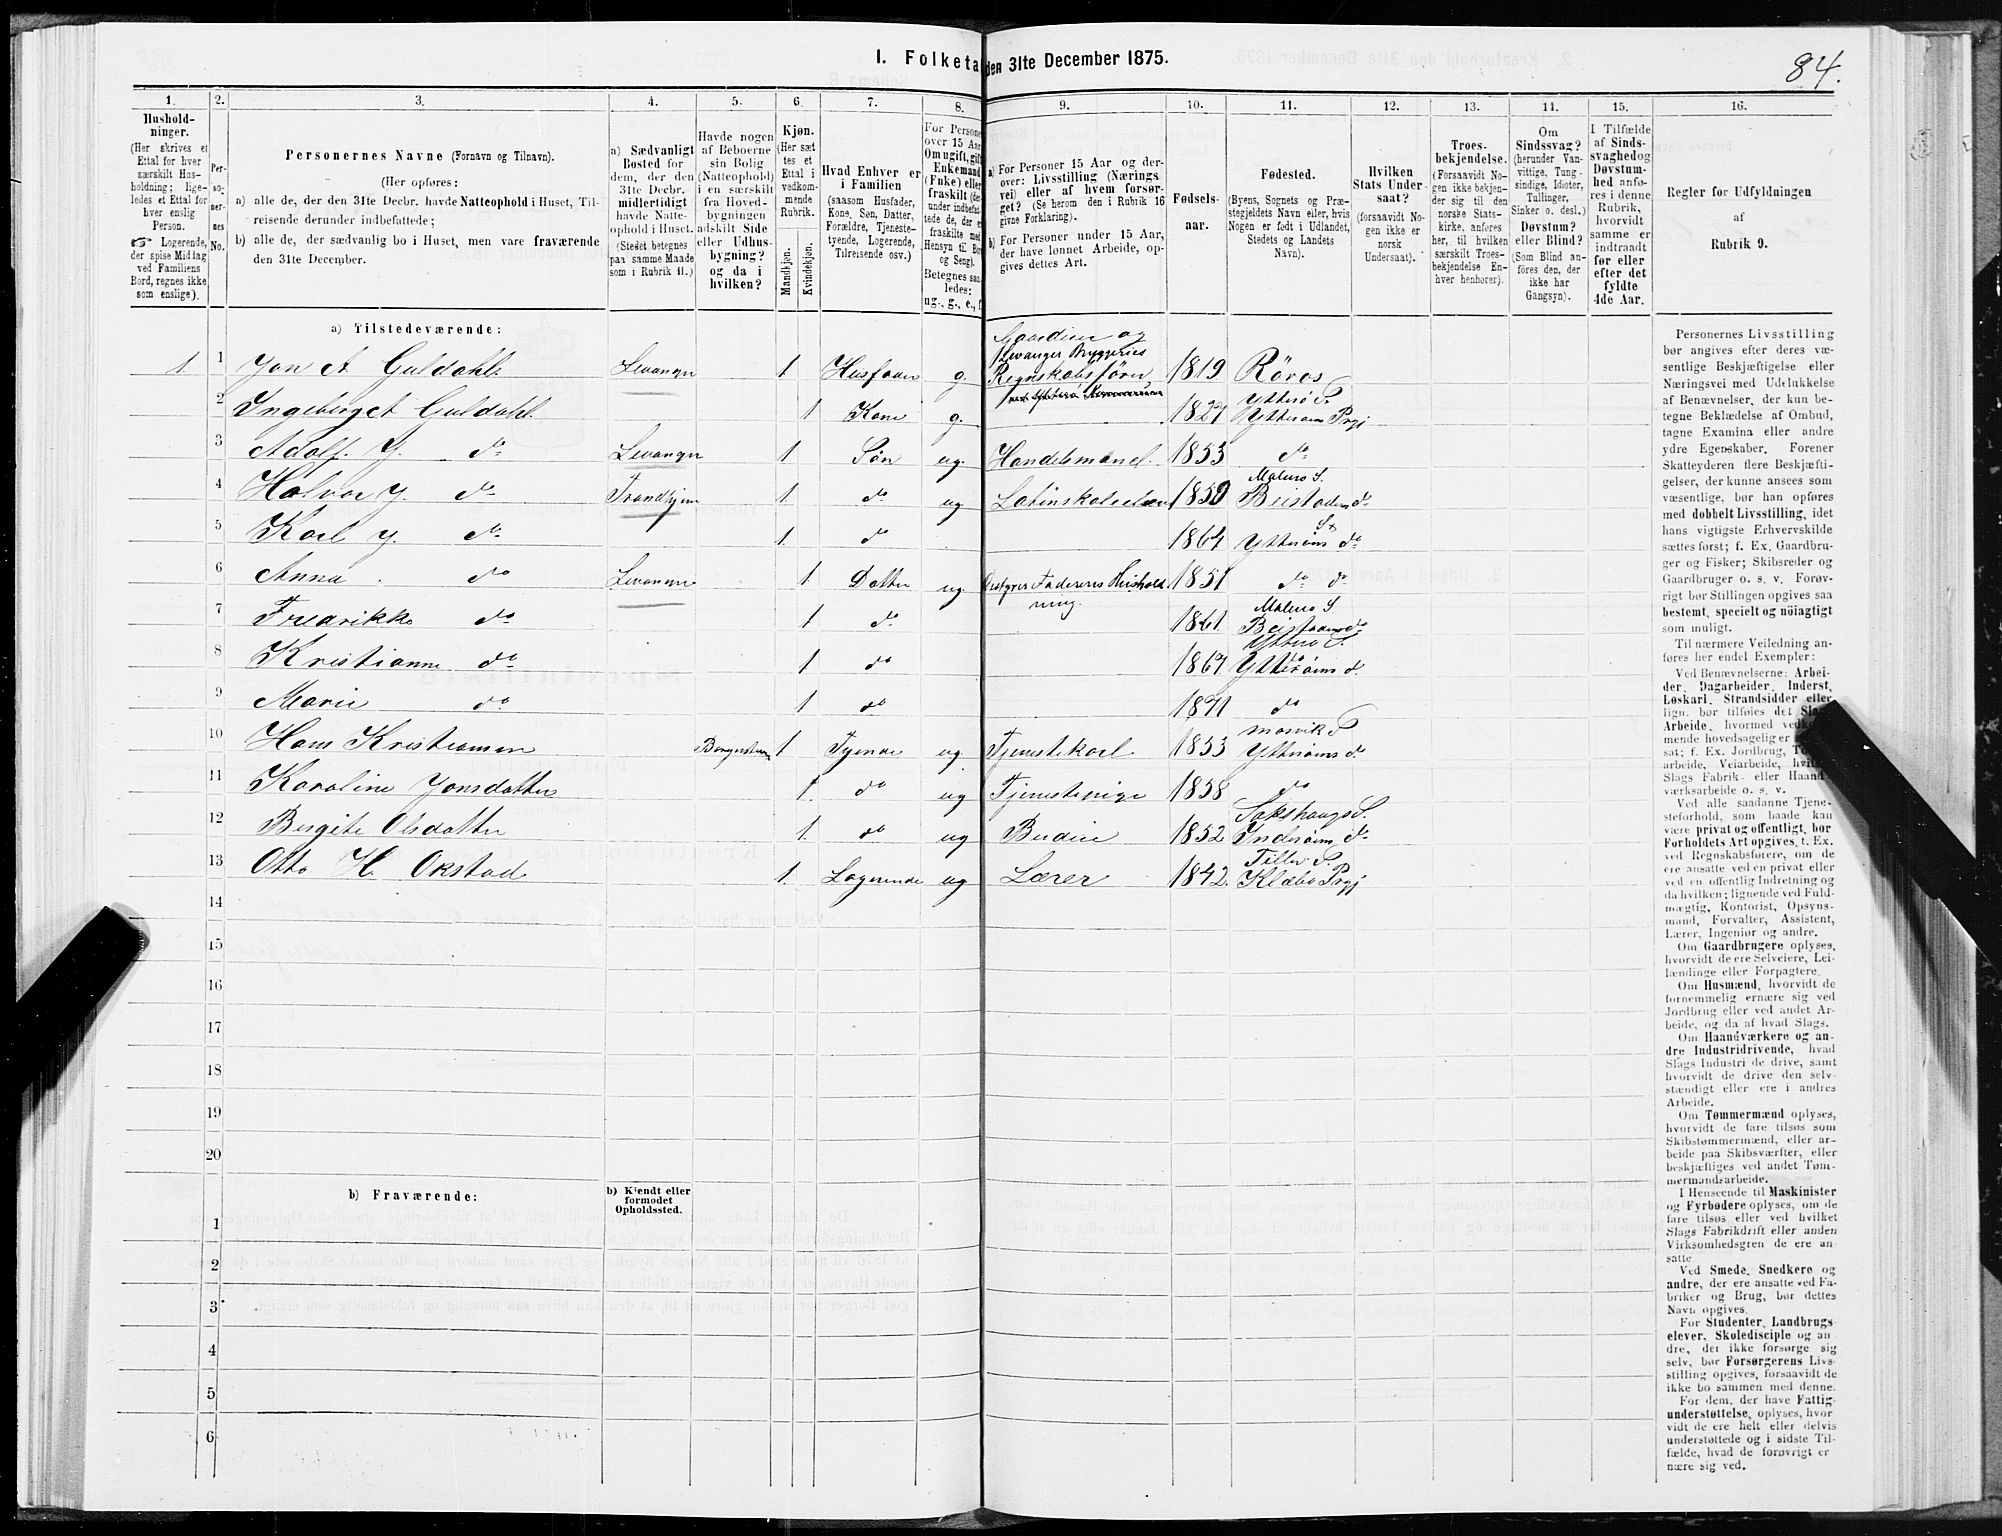 I. Folketal den 31te December 1875.
84.
1.
2.
3.
4.
5.
6.
7.
8.
9.
10.
11.
12.
13.
14.
15.
16.
Hushold-
ninger.
(Her skrives et
Ettal for hver
særskilt Hus-
holdning; lige-
ledes et Ettal for
hver enslig
Person.
☞ Logerende,
der spise Middag
ved Familiens
Bord, regnes ikke
som enslige).
Per-
so-
ner-
nes
No.
Personernes Navne (Fornavn og Tilnavn).
(Her opføres:
a) alle de, der den 31te Decbr. havde Natteophold i Huset, Til-
reisende derunder indbefattede;
b) alle de, der sædvanlig bo i Huset, men vare fraværende
den 31te December.
a) Sædvanligt
Bosted for
dem, der den
31te Decbr.
midlertidigt
havde Natte-
ophold i Huset.
(Stedet betegnes
paa samme Maade
som i Rubrik 11.)
Havde nogen
af Beboerne
sin Bolig
(Natteophold)
i en særskilt
fra Hoved-
bygningen
adskilt Side
eller Udhus-
bygning?
og da i
hvilken?
Kjøn.
(Her sæt-
tes et
Ettal i
vedkom-
mende
Rubrik.
Mandkjøn.
Kvindekjøn.
Hvad Enhver er
i Familien
(saasom Husfader,
Kone, Søn, Datter,
Forældre, Tjeneste-
tyende, Logerende,
Tilreisende osv.)
For Personer
over 15 Aar:
Om ugift, gift,
Enkemand
(Enke) eller
fraskilt
Betegnes saa-
ledes:
ug., g., e., f.
a) For Personer 15 Aar og der-
over: Livsstilling (Nærings-
vei) eller af hvem forsør-
get? (Se herom den i Rubrik 16
givne Forklaring).
b) For Personer under 15 Aar,
der have lønnet Arbeide, op-
gives dettes Art.
Fødsels-
aar.
Fødested.
(Byens, Sognets og Præ-
stegjeldets Navn eller, hvis
Nogen er født i Udlandet,
Stedets og Landets
Navn).
Hvilken
Stats Under-
saat?
(forsaavidt No-
gen ikke er
norsk
Undersaat).
Troes-
bekjendelse.
(Forsaavidt No-
gen ikke bekjen-
der sig til den
norske Stats-
kirke, anføres
her, til hvilken
særskilt Troes-
bekjendelse En-
hver henhører).
Om
Sindssvag?
(herunder Van-
vittige, Tung-
sindige, Idioter,
Tullinger,
Sinker o. desl.)
Døvstum?
eller Blind?
(Som Blind an-
føres den, der
ikke har
Gangsyn).
I Tilfælde
af Sinds-
svaghed og
Døvstum-
hed anfø-
res i denne
Rubrik,
hvorvidt
samme er
indtraadt
før eller
efter det
fyldte
4de Aar.
Regler for Udfyldningen
af
Rubrik 9.
a) Tilstedeværende:
1 1 Jon A Guldahl Levanger 1 Husfader g. Gaardeier og Levanger Bryggeries Regnskabsfører 1819 Røros
2 Ingeborget Guldahl 1 Kone g. 1827 Ytterø S Ytterøens Prgj
3 Adolf J. do Levanger 1 Søn ug. Handelsmand 1853 do
4 Halvor J. do Trondhjem 1 do ug Latinskoleelev 1850 Malmo S. Beistadens do
5 Karl J. do 1 do 1864 Ytterøens do
6 Anna do Levanger 1 Datter ug. Bestyrer Faderens Husholdning. 1851 do do
7 Fredrikke do 1 do 1861 Malmo S Beistadens do
8 Kristianne do 1 do 1867 Ytterø S. Ytterøens d.
9 Marie do 1 do 1871 do
10 Hans Kristiansen Borgestuen 1 Tjener ug. Tjenestekarl 1853 Mosvik S Ytterøens d.
11 Karoline Jonsdatter 1. do ug Tjenestepige 1858 do
12 Birgite Olsdatter 1. do ug Budeie 1852 Sakshaugs S. Inderøens do
13 Otto H. Okstad 1. Logerende ug Lærer 1842. Tiller S. Klæbo Prgj
14
15
16
17
18
19
20
b) Fraværende:
b) Kjendt eller
formodet
Opholdssted.
1
2
3
4
5
6
Personernes Livsstilling
bør angives efter deres væ-
sentlige Beskjæftigelse eller
Næringsvei med Udelukkelse
af Benævnelser, der kun be-
tegne Beklædelse af Ombud,
tagne Examina eller andre
ydre Egenskaber. Forener
Skatteyderen flere Beskjæfti-
gelser, der kunne ansees som
væsentlige, bør han opføres
med dobbelt Livsstilling, idet
hans vigtigste Erhvervskilde
sættes først; f. Ex. Gaardbru-
ger og Fisker; Skibsreder og
Gaardbruger o. s. v. Forøv-
rigt bør Stillingen opgives saa
bestemt, specielt og nøiagtigt
som muligt.
Til nærmere Veiledning an-
føres her endel Exempler:
Ved Benævnelserne: Arbei-
der, Dagarbeider, Inderst,
Løskarl, Strandsidder eller
lign. bør tilføies det Slags
Arbeide, hvormed vedkom-
mende hovedsagelig er
sat; f. Ex. Jordbrug,
arbeide, Veiarbeide, hvil
Slags Fabrik- eller Haand-
værksarbeide o. s. v.
Ved alle saadanne Tjene-
steforhold, som baade kan
være privat og offentligt, bør
Forholdets Art opgives, f. Ex.
ved Regnskabsførere, om de
ere ansatte ved en privat eller
ved en offentlig Indretning og
da hvilken; lignende ved Fuld-
mægtig, Kontorist, Opsyns-
mand, Forvalter, Assistent,
Lærer, Ingeniør og andre.
Om Gaardbrugere oplyses,
hvorvidt de ere Selveiere, Lei-
lændinge eller Forpagtere.
Om Husmænd, hvorvidt de
fornemmelig ernære sig ved
Jordbrug eller ved andet Ar-
beide, og da af hvad Slags.
Om Haandværkere og an-
dre Industridrivende, hvad
Slags Industri de drive, samt
hvorvidt de drive den selv-
stændigt eller ere i andres
Arbeide.
Om Tømmermænd oplyses,
hvorvidt de fare tilsøs som
Skibstømmermænd, eller ar-
beide paa Skibsværfter, eller
beskjæftiges ved andet Tøm-
mermandsarbeide.
I Henseende til Maskinister
og Fyrbødere oplyses, om de
fare tilsøs eller ved hvilket
Slags Fabrikdrift eller anden
Virksomhedsgren de ere an-
satte.
Ved Smede, Snedkere og
andre, der ere ansatte ved Fa-
briker og Brug, bør dettes
Navn opgives.
For Studenter, Landbrugs-
elever, Skoledisciple og an-
dre, der ikke forsørge sig
selv, bør Forsørgerens Livs-
stilling opgives, forsaavidt de
ikke bo sammen med denne.
For dem, der have Fattig-
understøttelse, oplyses, hvor-
vidt de ere helt eller delvis
understøttede og i sidste Til-
fælde, hvad de forøvrigt er-
nære sig ved.